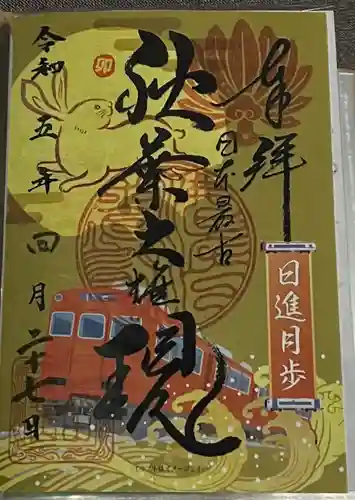 奉拝
日進月歩
日本最古
秋葉大権現
令和五年四月二十七日
卯